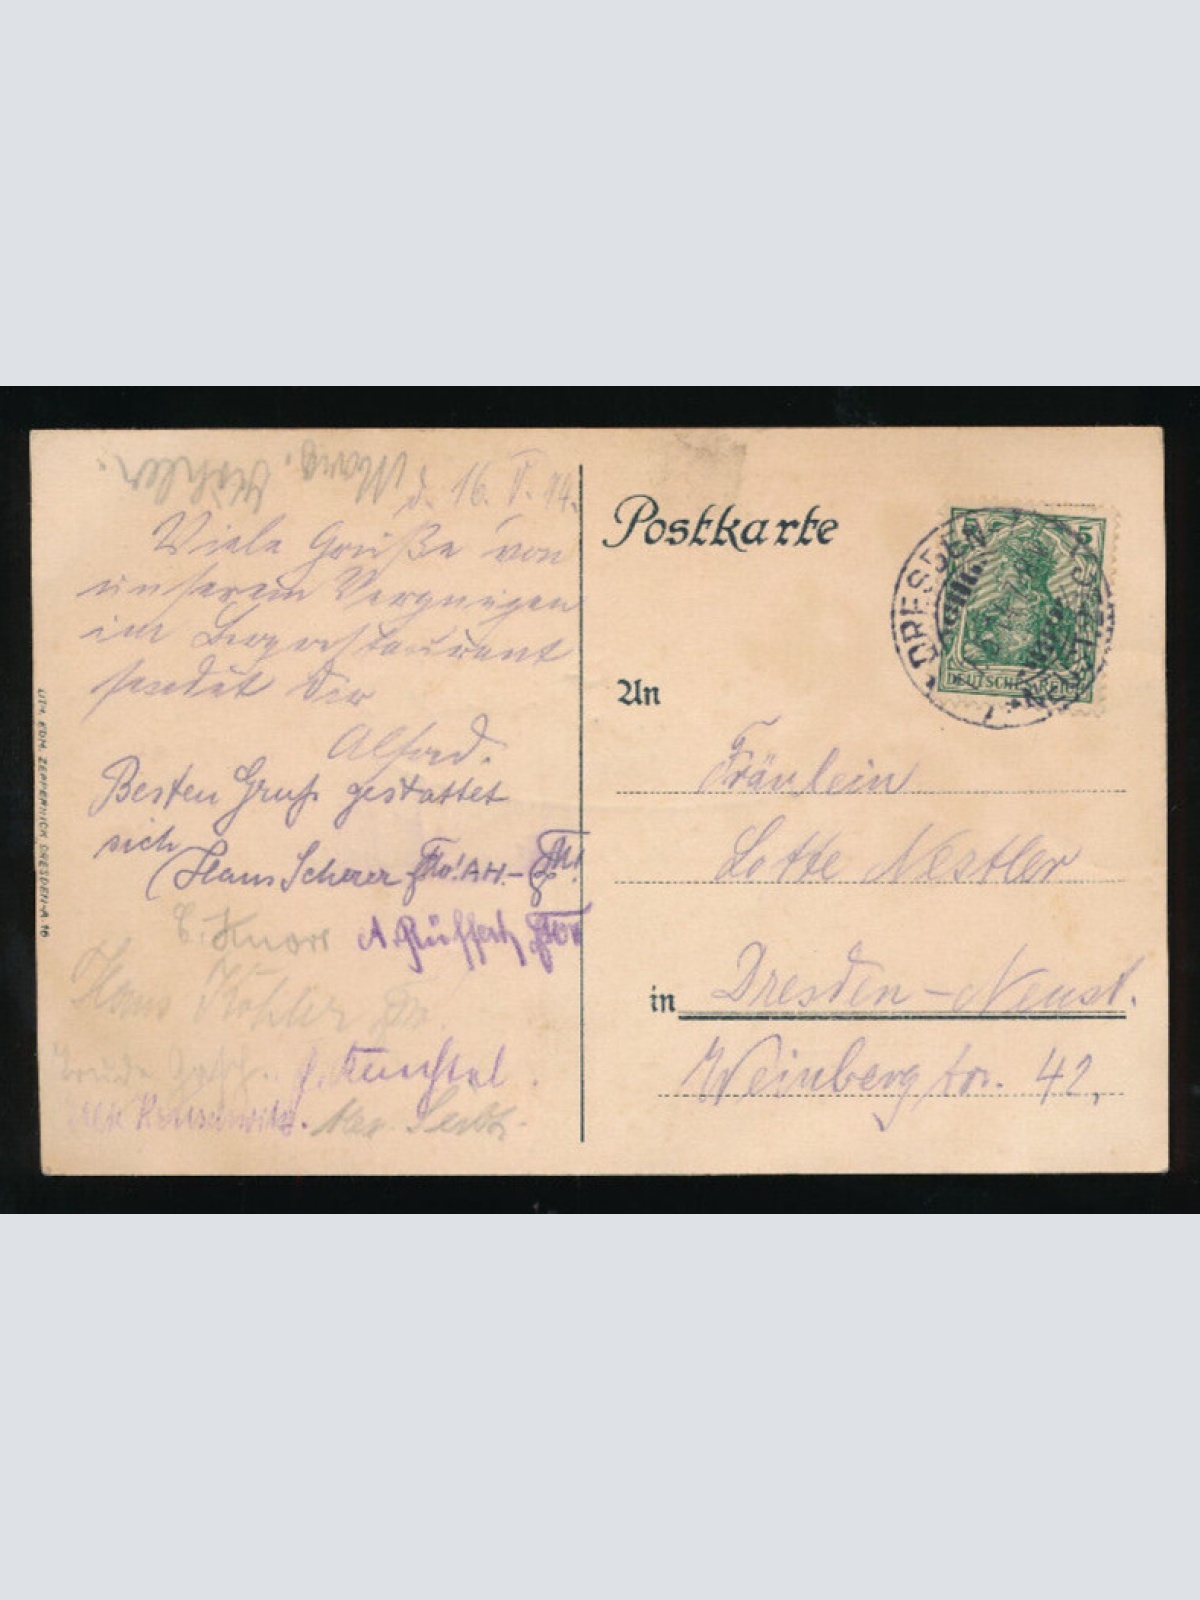 Marg. Köhler.
d. 16. V. 14.
Viele Grüße von
unserem Vergnügen
im Bergrestaurant
sendet Dir
Alfred.
Besten Gruß gestattet
sich
Hans Scherer AH.
E. Knorr A.
Hans Köhler
Trude
Alex.
Postkarte
DRESDEN
NEUST
5
DEUTSCHES REICH
An
Fräulein
Lotte Nestler
in Dresden-Neust.
Weinbergstr. 42,
LITH. KOM. ZEPPERNICK, DRESDEN-A. 16